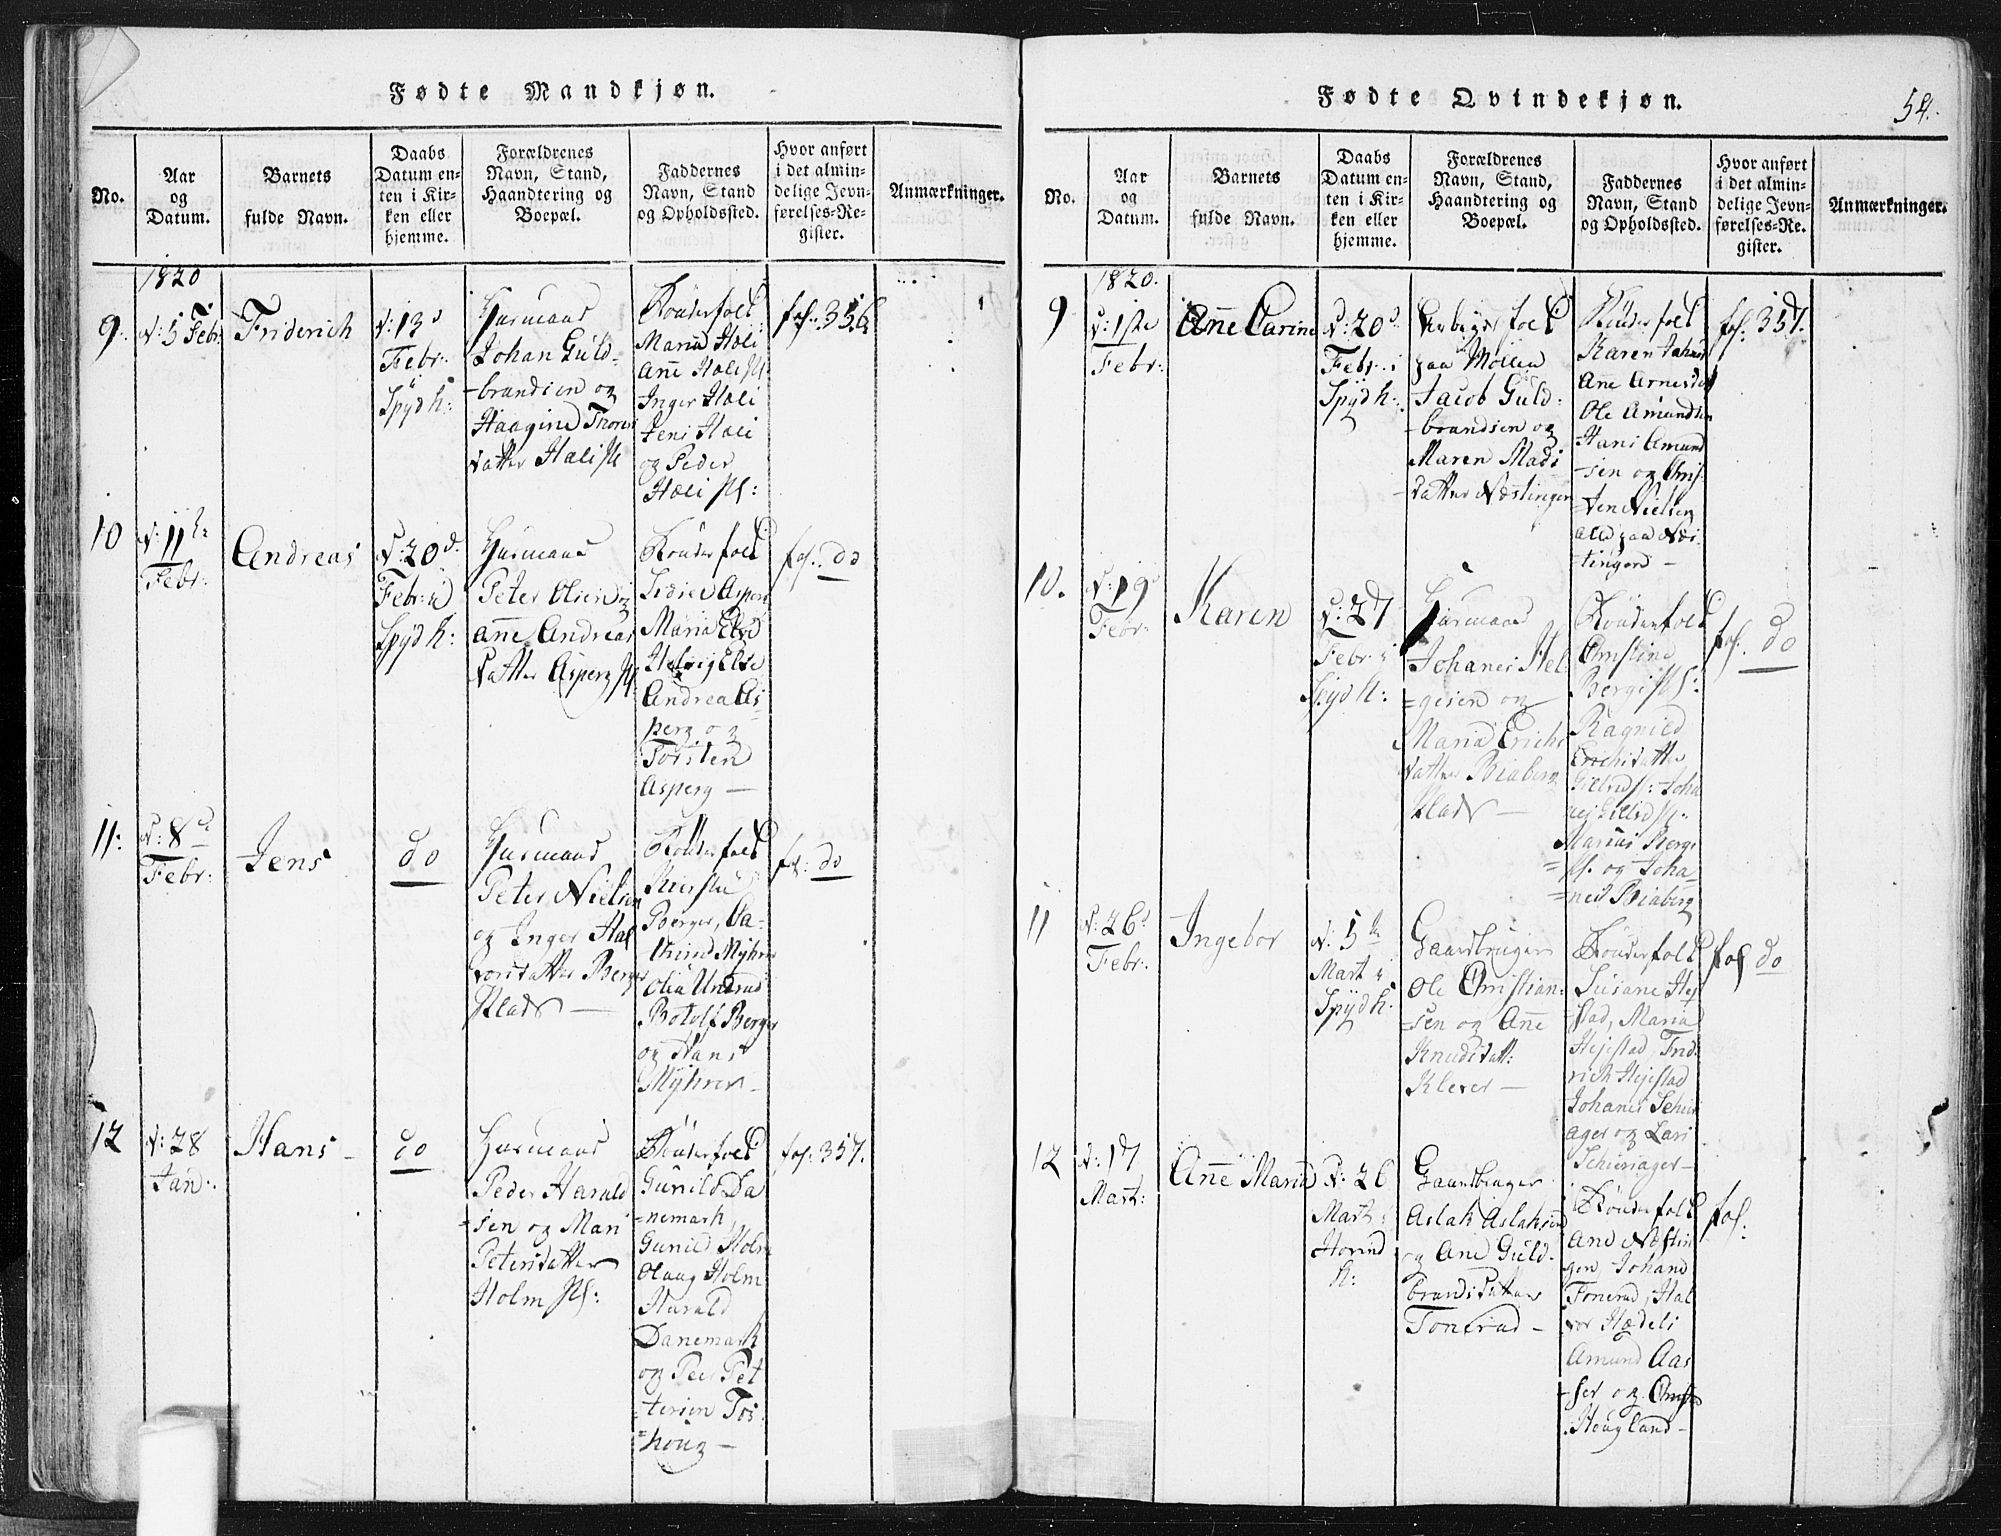 Fødte Mandkjøn.
No.
Aar
og
Datum.
Barnets
fulde Navn.
Daabs
Datum en-
ten i Kir-
ken eller
hjemme.
Forældrenes
Navn, Stand,
Haandtering og
Boepæl.
Faddernes
Navn, Stand
og Opholdssted.
Hvor anført
i det almin-
delige Jevn-
førelses-Re-
gister.
Anmærkninger.
1820
9.
d: 5 Febr:
Friderich
d: 13d
Febr:
Spydk:
Huusmand
Johan Guld-
-brandsen og
Haagine Thores
datter Holi Pl
Bønderfolk
Maria Holi
Anne Holi Pl
Inger Holi
Jens Holi
og Peder
Holi Pl:
fol: 356
10
d: 11te
Febr:
Andreas
d: 20d
Febr: i
Spydk:
Huusmand
Peter Olsen og
Anne Andreas
datter Asperg Pl:
Bønderfolk
Asperg
Maria
Helvig Else
Andrea As-
perg og
Torsten
Asperg —
fol: do
11:
d: 8de
Febr:
Jens
do
Huusmand
Peter Nielsen
og Inger Hal
vorsdatter Berger
Plads —
Bønderfolk
Kirstie
Berger, Ca-
thrine Myhre
Olia Undrud
Botolf Berger
og Hans
Myhren —
fol: do
12
d: 28
Jan:
Hans —
do
Huusmand
Peder Harald
=sen og Mari
Petersdatter
Holm Pl:
Bønderfolk
Gunild Da
=nemark,
Gunild Holm
Olaug Holm
Harald
Danemark
og Peer Pet
=tersen Tos
=houg —
fol: 357.
Fødte Qvindekjøn.
54.
No.
Aar
og
Datum.
Barnets
fulde Navn.
Daabs
Datum en-
ten i Kir-
ken eller
hjemme.
Forældrenes
Navn, Stand,
Haandtering og
Boepæl.
Faddernes
Navn, Stand
og Opholdssted.
Hvor anført
i det almin-
delige Jevn-
førelses-Re-
gister.
Anmærkninger.
1820.
9
d: 1ste
Febr:
Anne Carine
d: 20d
Febr: i
Spydk:
Arbeydsfolk
paa Moelven
Jacob Guld-
-brandsen og
Maren Mads
datter Næstingen
Bønderfolk
Karen Johns
Ane Arnesdat
Ole Amundsen
Hans Amund
-sen og Chris-
ten Nielsen
alle paa Næs-
tingen —
fol: 357.
10.
d: 19
Febr:
Karen
d: 27
Febr: i
Spydk:
Huusmand
Johanes Hel
=gesen og
Maria Erichs
datter Biaberg
Plads —
Bønderfolk
Christine
Bergs Pl:
Ragnild
Erichsdatter
Joha
Marius Bergs
=Pl. og Joha-
=nes Biaberg
fol: do
11
d: 26d
Febr:
Ingebor
d: 5te
Mart i
Spydk:
Gaardbruger
Ole Christian-
sen og Anne
Knudsdatt:
Klever —
Bønderfolk
Susane Hej
stad, Maria
Hejestad, Frid-
rich Hejestad
Johanes Schier
ager og Lars
Schierager —
fol do
12
d: 17
Mart:
Anne Maria
d: 26
Mart i
Hovind
k:
Gaardbruger
Aslak Aslaksen
og Ane Guld-
brandsdatter
Tonerud —
Bønderfolk
Ane Næstin
gen Johane
Tonerud, Hal
vor Hædeli
Amund Aas
ser og Christen
Hougland —
fol: